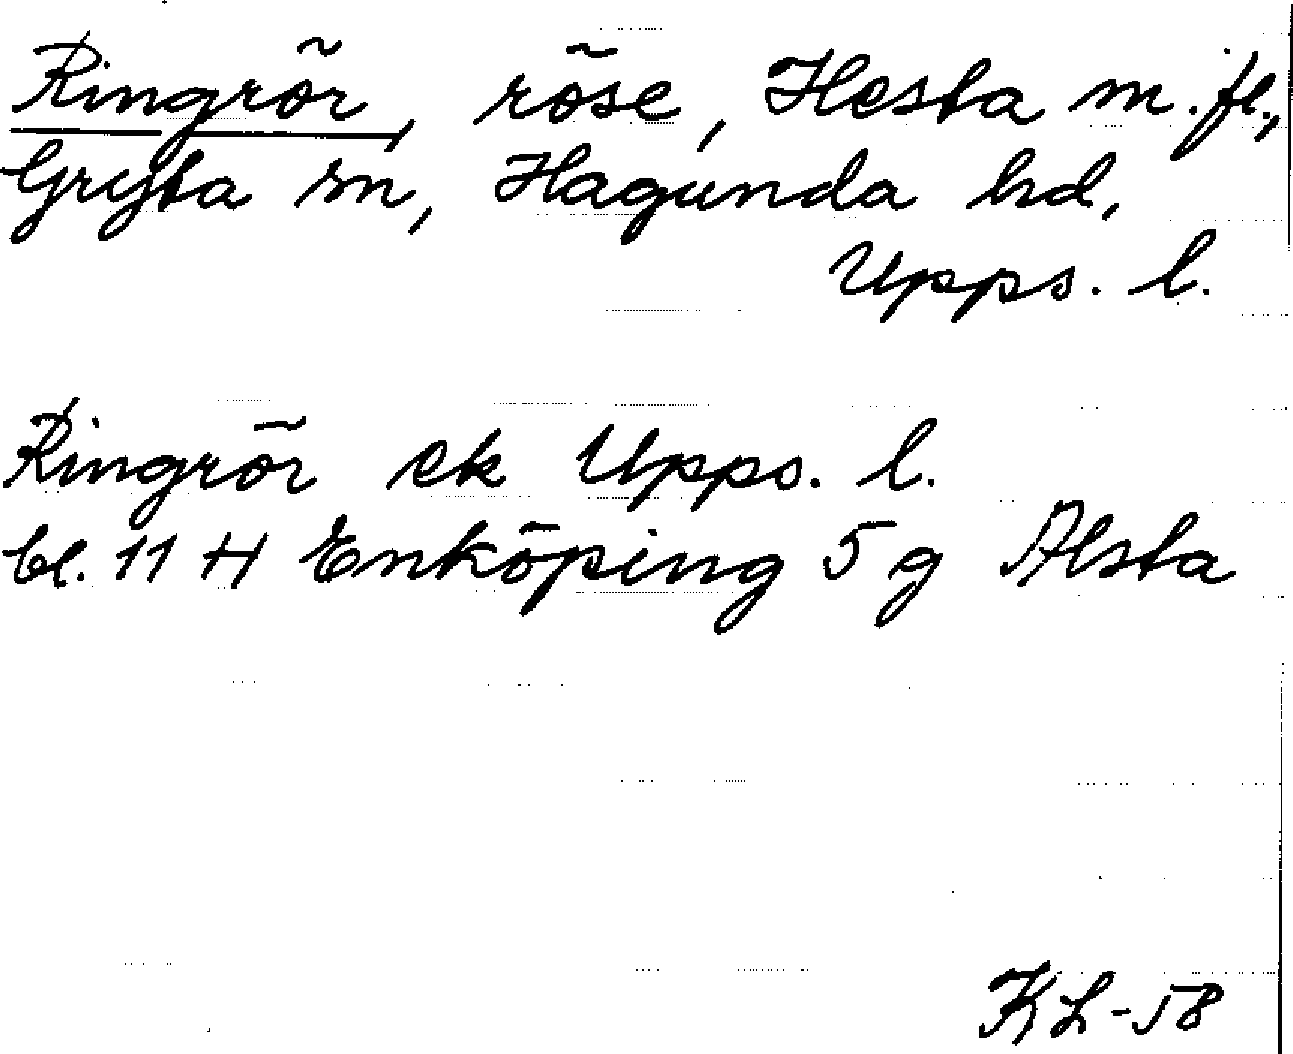 Ringrör, röse, Hesta m.fl.,
Gryta sn, Hagunda hd,
Upps. l.
Ringrör ek Upps. l.
bl. 11 H Enköping 5 g Alsta
KL-58